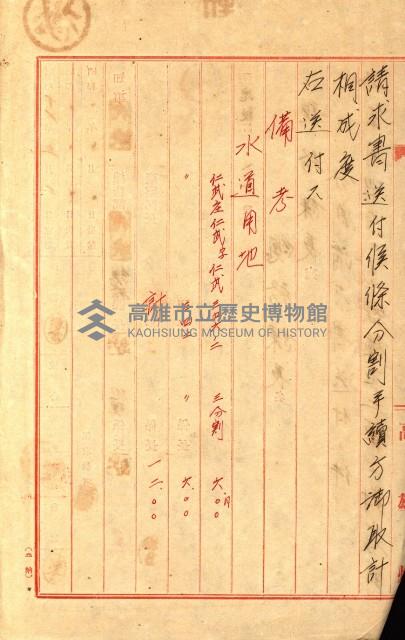 請求書送付候條分割手續方御取計
相成度
右送付ス
備考
水道用地
仁武庄仁武字仁武 三分割 六.〇〇
〃 〃 六.〇〇
計 一二.〇〇
高雄市立歷史博物館
KAOHSIUNG MUSEUM OF HISTORY